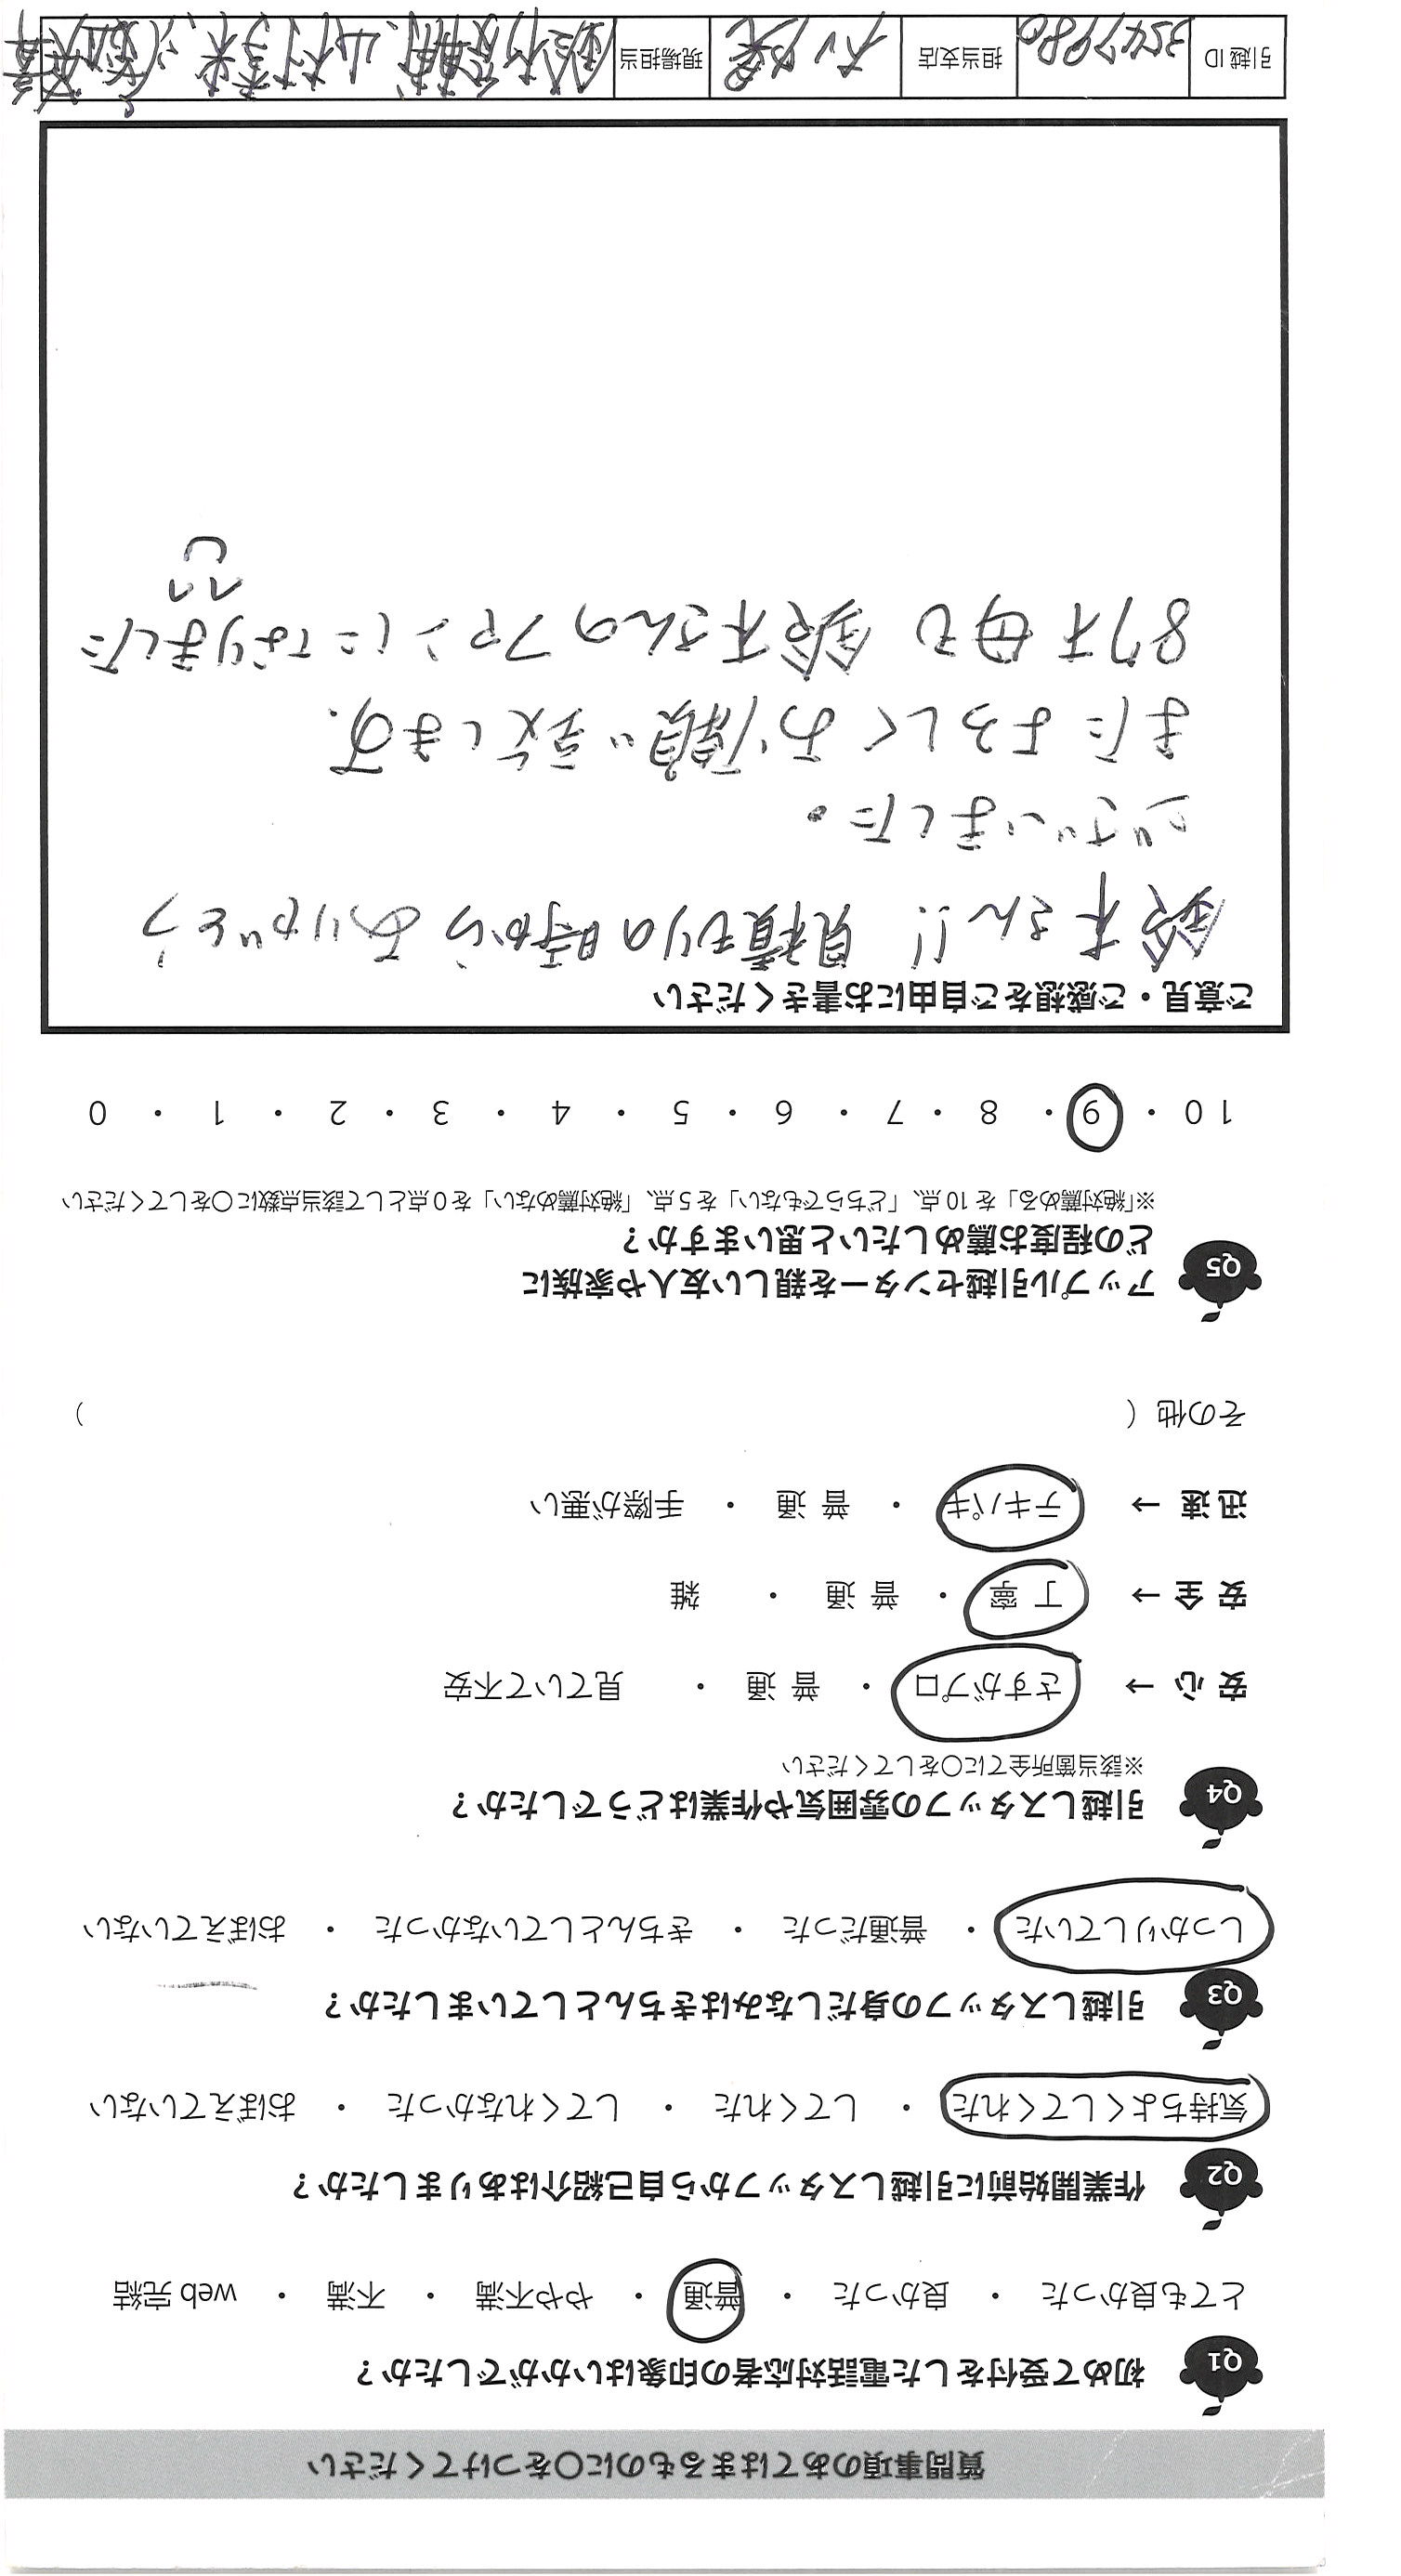 質問事項のあてはまるものに○をつけてください
Q1 初めて受付をした電話対応者の印象はいかがでしたか？
とても良かった ・ 良かった ・ 普通 ・ やや不満 ・ 不満 ・ web 完結
Q2 作業開始前に引越しスタッフから自己紹介はありましたか？
気持ちよくしてくれた ・ してくれた ・ してくれなかった ・ おぼえていない
Q3 引越しスタッフの身だしなみはきちんとしていましたか？
しっかりしていた ・ 普通だった ・ きちんとしていなかった ・ おぼえていない
Q4 引越しスタッフの雰囲気や作業はどうでしたか？
※該当箇所全てに○をしてください
安 心 → さすがプロ ・ 普 通 ・ 見ていて不安
安 全 → 丁 寧 ・ 普 通 ・ 雑
迅 速 → テキパキ ・ 普 通 ・ 手際が悪い
その他（ ）
Q5 アップル引越センターを親しい友人や家族に
どの程度お薦めしたいと思いますか？
※「絶対薦める」を 10 点、「どちらでもない」を 5 点、「絶対薦めない」を 0 点として該当点数に○をしてください
10 ・ 9 ・ 8 ・ 7 ・ 6 ・ 5 ・ 4 ・ 3 ・ 2 ・ 1 ・ 0
ご意見・ご感想をご自由にお書きください
鈴木さん!! 見積もりの時からありがとう
ございました。
またよろしくお願い致します.
87才母も鈴木さんのファンになりました
引越 ID 3547980 担当支店 現場担当